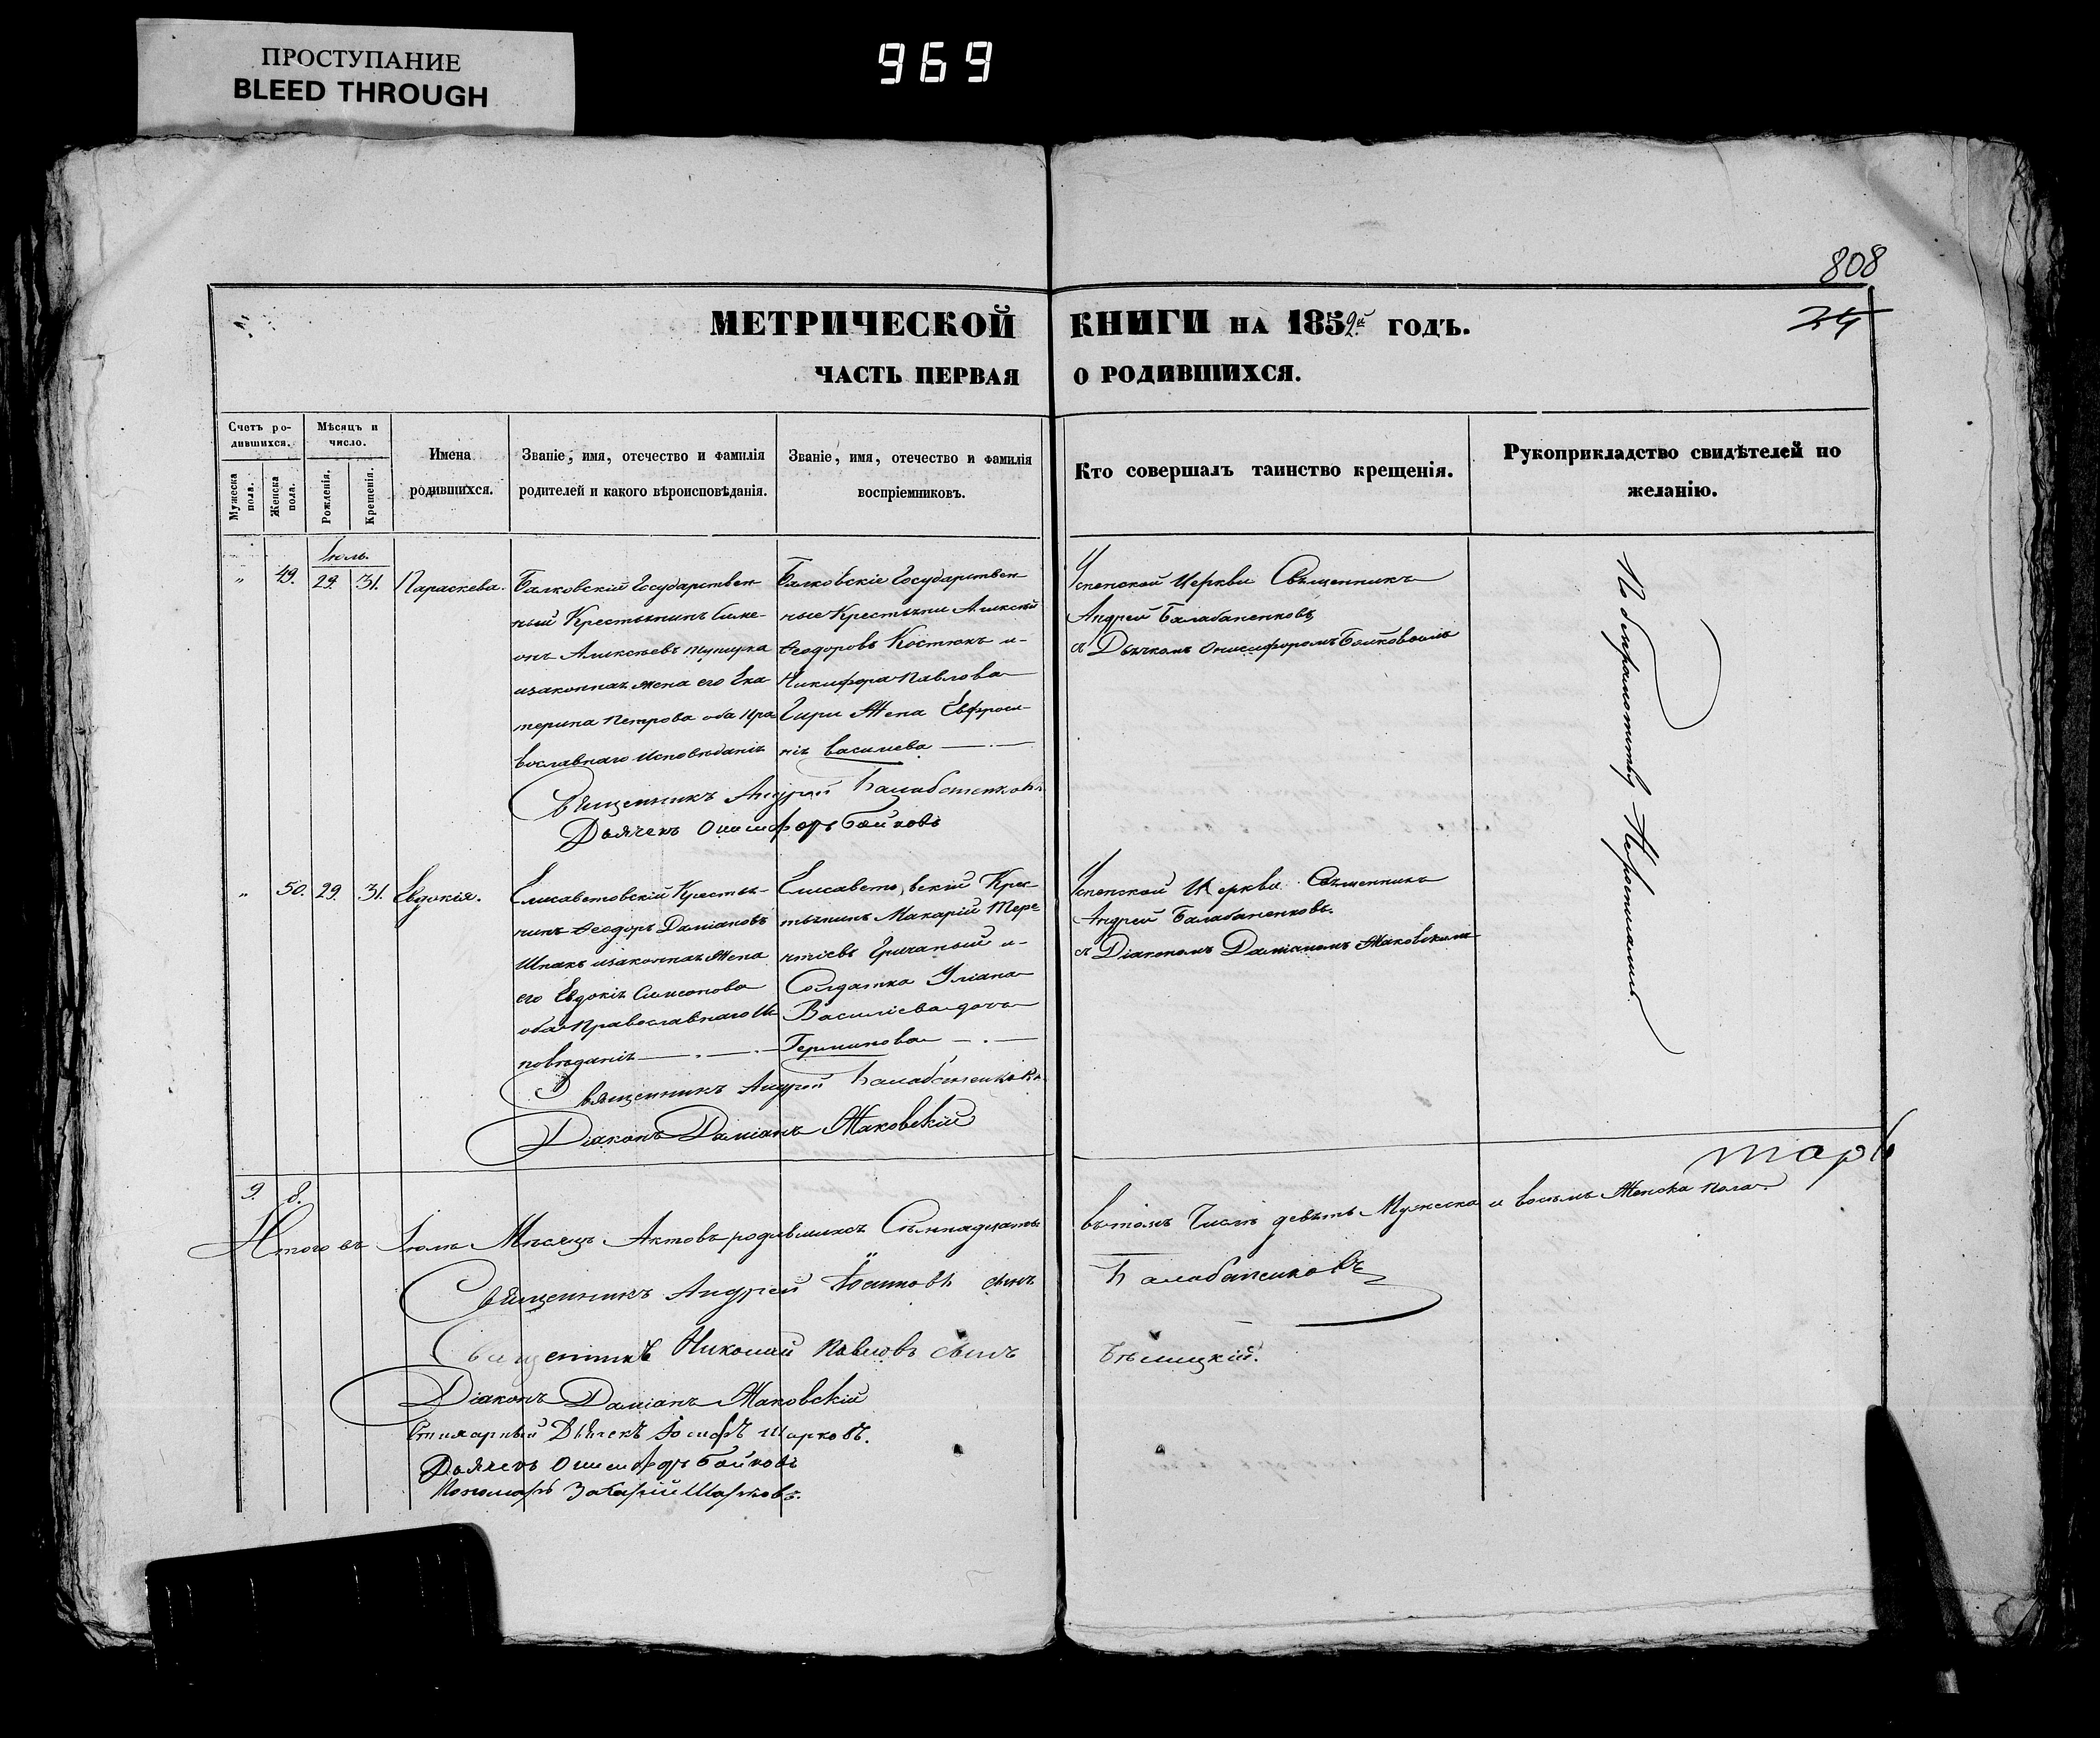 ПРОСТУПАНИЕ
BLEED THROUGH
969
808
24
МЕТРИЧЕСКОЙ КНИГИ НА 1852й ГОДЪ.
ЧАСТЬ ПЕРВАЯ О РОДИВШИХСЯ.
Счетъ родившихся.
Мужеска пола.
Женска пола.
Мѣсяцъ и число.
Рожденія.
Крещенія.
Имена родившихся.
Званіе, имя, отечество и фамилія
родителей и какого вѣроисповѣданія.
Званіе, имя, отечество и фамилія
воспріемниковъ.
Кто совершалъ таинство крещенія.
Рукоприкладство свидѣтелей по
желанію.
Іюль.
" 49. 29. 31. Параскева.
Балковскій Государствен
ный Крестьянинъ Симе-
онъ Алексѣевъ
изаконная жена его Ека
терина Петрова оба Пра
вославнаго Исповѣданія
Балковскіе Государствен
ные Крестьяне Алексѣй
Ѳеодоровъ Костюкъ и
Никифора Павлова
Гири Жена Евфроси-
нія Василиева
Успенской Церкви Священникъ
Андрей Балабаненковъ
съ Дьячкомъ Онисифоромъ Байковымъ
Священникъ Андрей Балабаненковъ
Дьячекъ Онисифоръ Байковъ
По безграмотству Неросписались
" 50. 29. 31. Евдокія.
Елисаветовскій Кресть-
нинъ Ѳеодоръ Даміановъ
Шпакъ изаконная Жена
его Евдокія Симеонова
оба Православнаго Ис
повѣданія
Елисаветовскій Крес-
тьянинъ Макарій Тере
нтіевъ Гричаный и
Солдатка Уліана
Василіева дочь
Германова
Успенской Церкви Священникъ
Андрей Балабаненковъ.
съ Діакономъ Даміаномъ Маковскимъ
Священникъ Андрей Балабаненковъ
Діаконъ Даміанъ Маковскій
9. 8.
Итого въ Іюлѣ Мѣсяцѣ Актовъ родившихся Семнадцать
вътомъ Числѣ девять Мужеска и восьмь Женска пола
Священникъ Андрей Іоанновъ сынъ Балабаненковъ
Священникъ Николай Павловъ сынъ Бѣлицкій.
Діаконъ Даміанъ Маковскій
Стихарный Дьячекъ Іосифъ Шарковъ.
Дьячекъ Онисифоръ Байковъ
Пономарь Захарій Шарковъ.